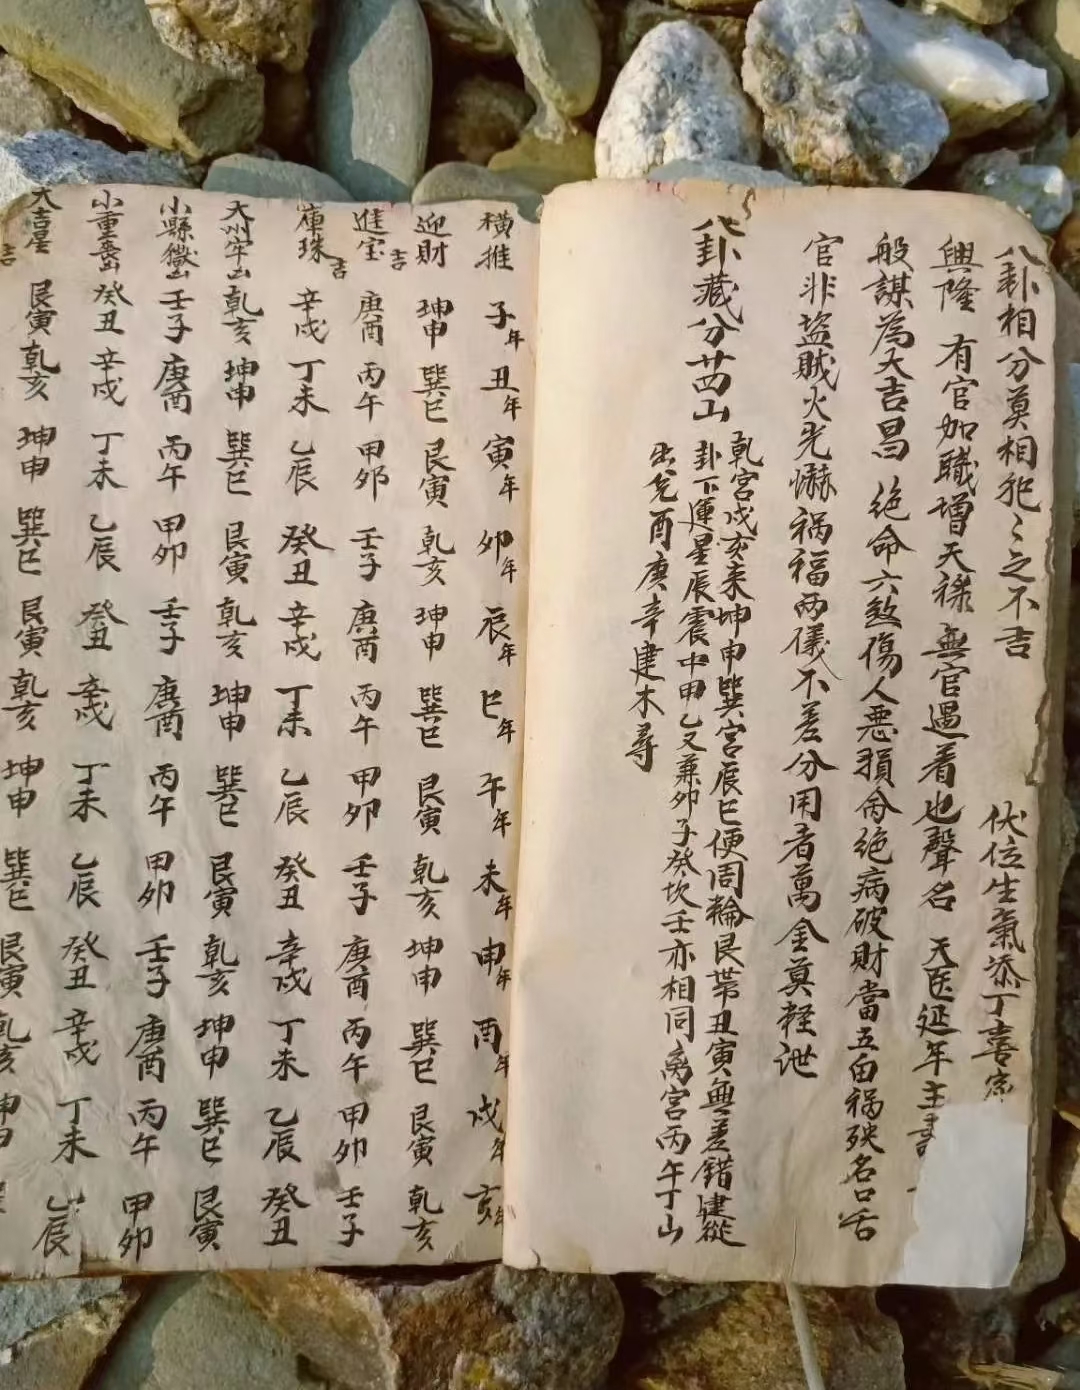 八卦相分莫相犯〻之不吉 伏位生氣添丁喜
興隆 有官加職增天祿 無官遇着也聲名 天医延年主
般謀為大吉昌 絶命六煞傷人惡 絶病破財當五由禍殃名口舌
官非盜賊火光嚇 禍福兩儀不差分 用者萬金莫輕泄
八卦藏分廿四山
乾宮戌亥未坤申巽宮辰巳便周輪艮帶丑寅無差錯建從
卦下運星辰震中甲乙又兼卯子癸坎壬亦相同离宮丙午丁山
出兌酉庚辛建木尋
橫推 子年 丑年 寅年 卯年 辰年 巳年 午年 未年 申年 酉年 戌年 亥年
迎財 坤申 巽巳 艮寅 乾亥 坤申 巽巳 艮寅 乾亥 坤申 巽巳 艮寅 乾亥
進宝吉 庚酉 丙午 甲卯 壬子 庚酉 丙午 甲卯 壬子 庚酉 丙午 甲卯 壬子
庫珠吉 辛戌 丁未 乙辰 癸丑 辛戌 丁未 乙辰 癸丑 辛戌 丁未 乙辰 癸丑
大州牢山 乾亥 坤申 巽巳 艮寅 乾亥 坤申 巽巳 艮寅 乾亥 坤申 巽巳 艮寅
小縣獄山 壬子 庚酉 丙午 甲卯 壬子 庚酉 丙午 甲卯 壬子 庚酉 丙午 甲卯
小重喪山 癸丑 辛戌 丁未 乙辰 癸丑 辛戌 丁未 乙辰 癸丑 辛戌 丁未 乙辰
大吉星吉 艮寅 乾亥 坤申 巽巳 艮寅 乾亥 坤申 巽巳 艮寅 乾亥 坤申